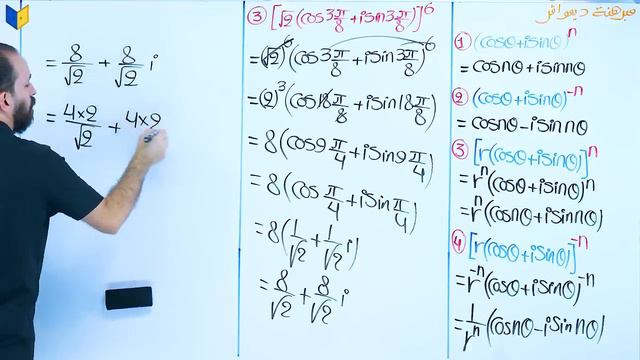 = 8/√2 + 8/√2 i
= 4×2/√2 + 4×2
③ [√2 (cos 3π/8 + i sin 3π/8)]^6
= (√2)^6 (cos 3π/8 + i sin 3π/8)^6
= (2)^3 (cos 18π/8 + i sin 18π/8)
= 8 (cos 9π/4 + i sin 9π/4)
= 8 (cos π/4 + i sin π/4)
= 8 (1/√2 + 1/√2 i)
= 8/√2 + 8/√2 i
مبرهنة ديموافر
① (cosθ + isinθ)^n
= cosnθ + isinnθ
② (cosθ + isinθ)^-n
= cosnθ - isin nθ
③ [r(cosθ + isinθ)]^n
= r^n (cosθ + isinθ)^n
= r^n (cosnθ + isinnθ)
④ [r(cosθ + isinθ)]^-n
= r^-n (cosθ + isinθ)^-n
= 1/r^n (cosnθ - isin nθ)